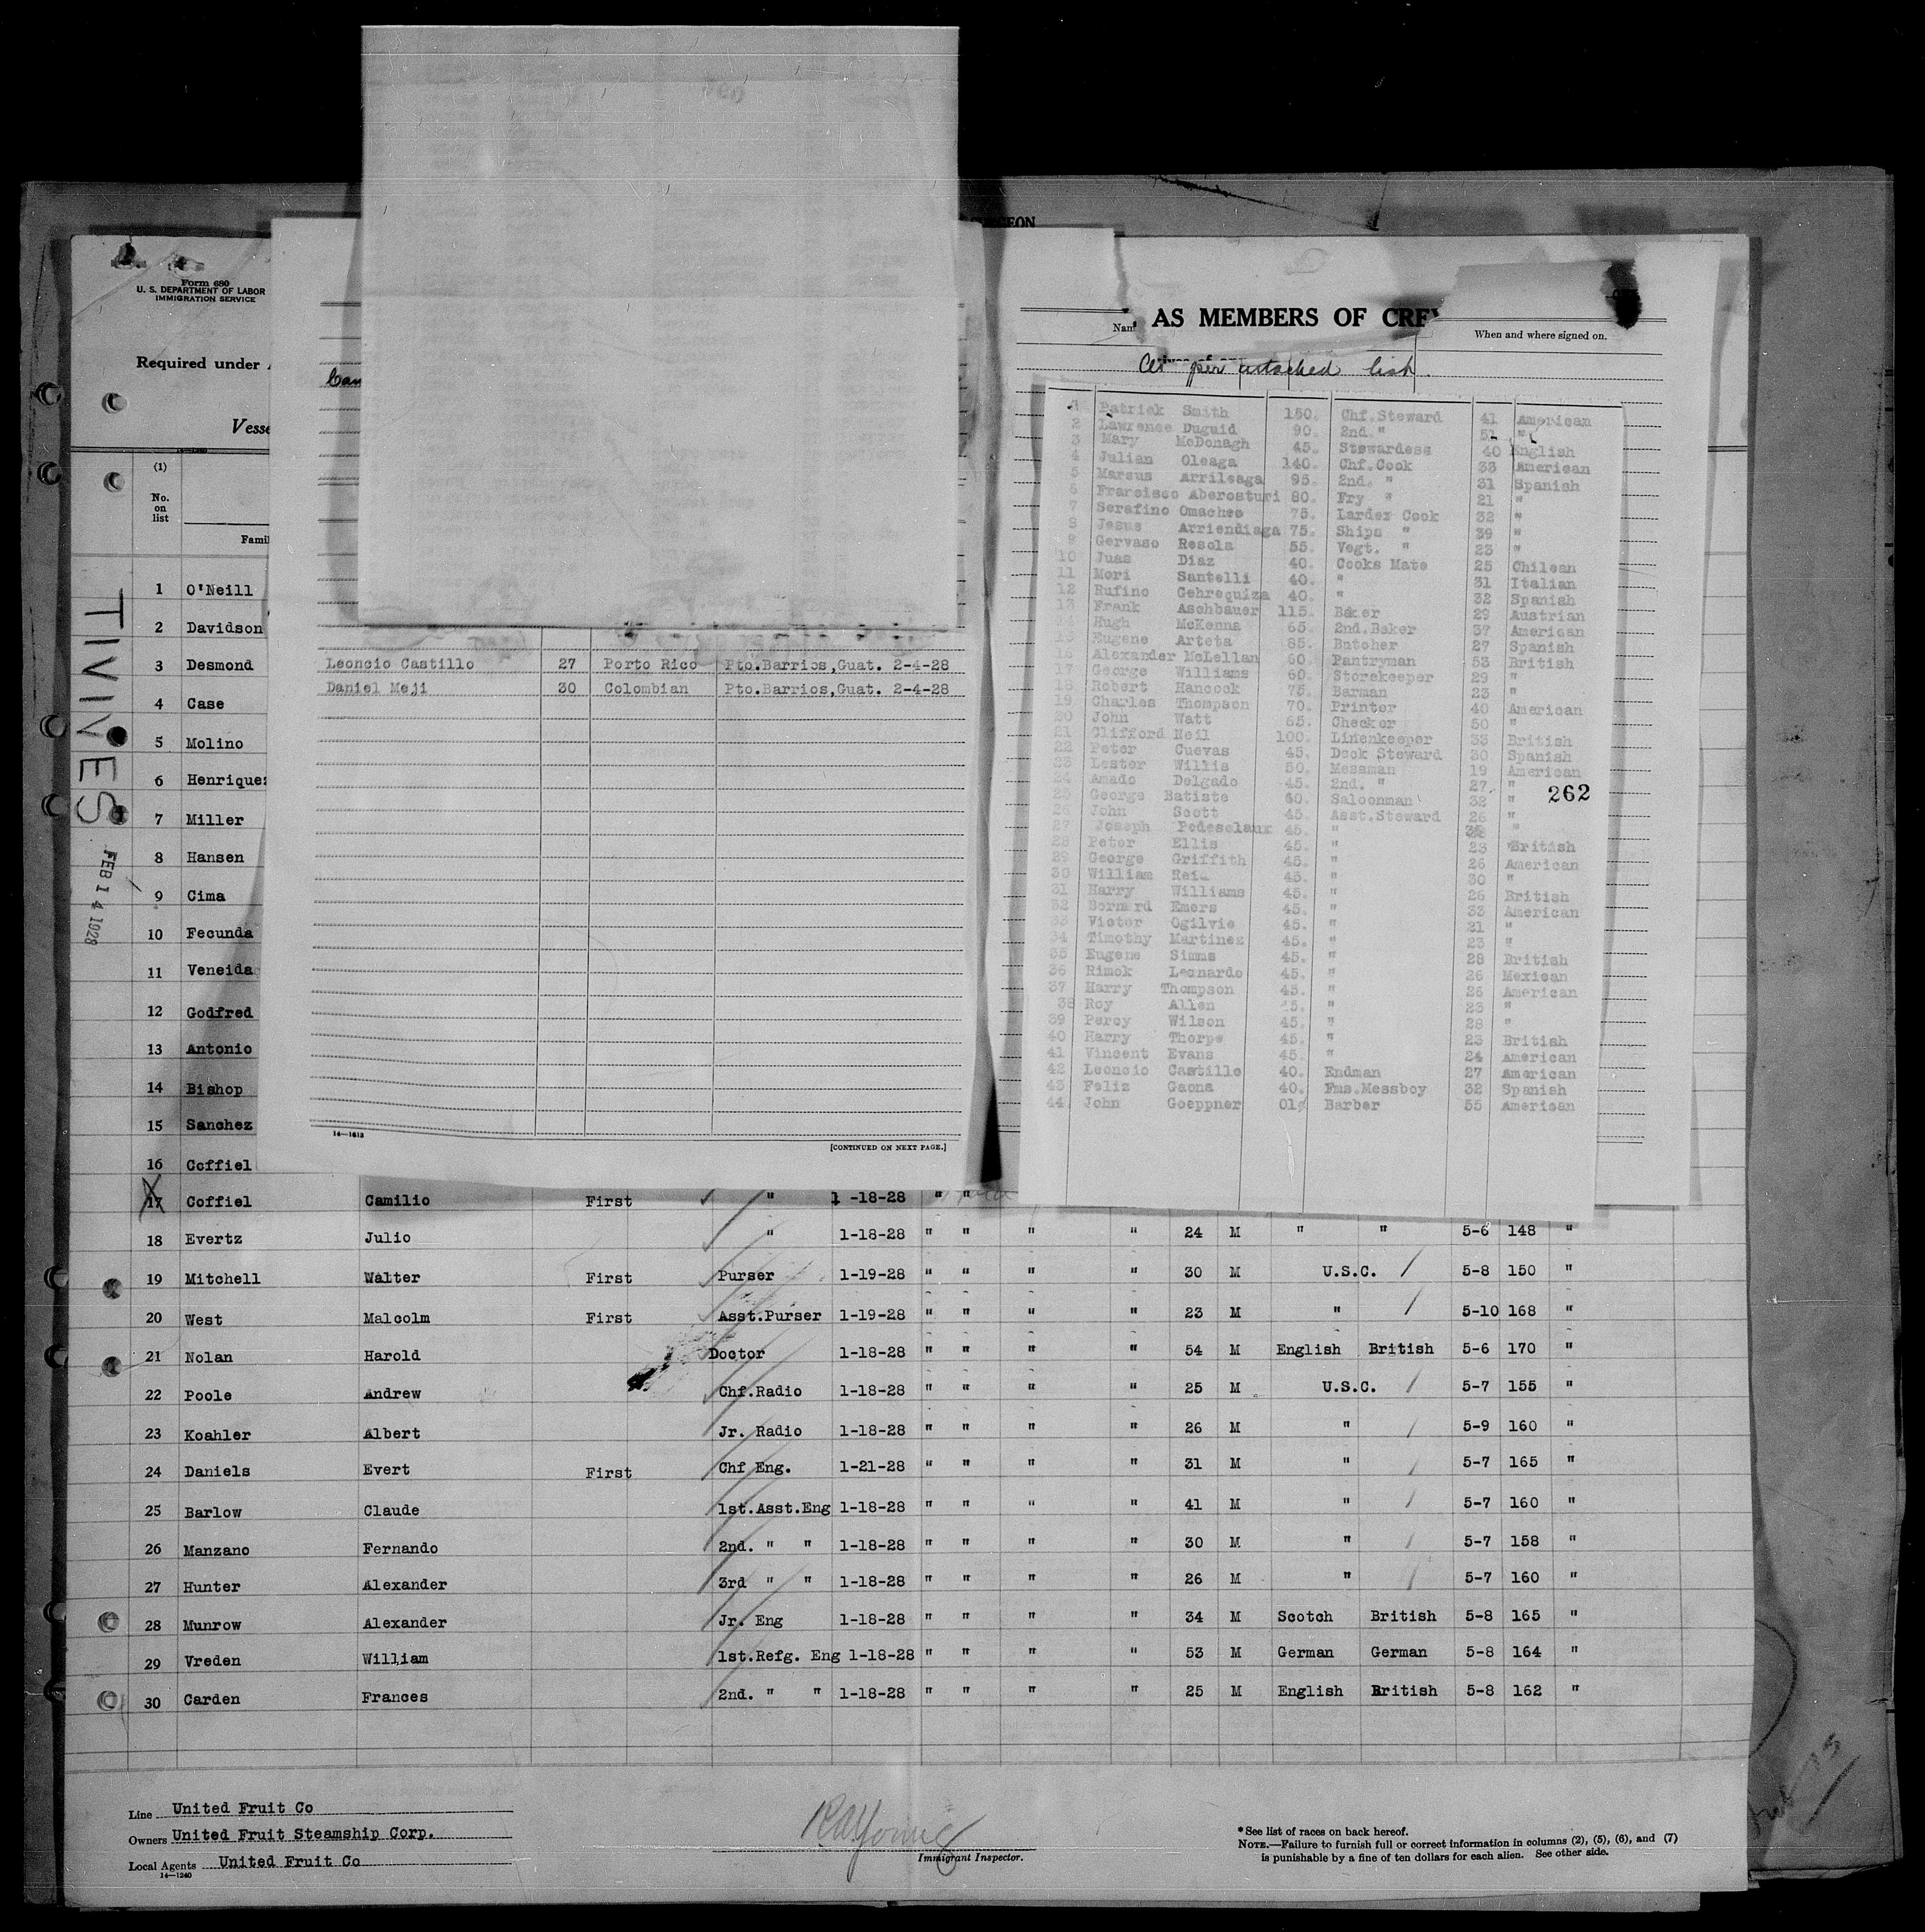 Form 680
U. S. DEPARTMENT OF LABOR
IMMIGRATION SERVICE
Required under
Vesse
14—1240
(1)
No.
on
list
Famil
TIVIVES
FEB 14 1928
1 O'Neill
2 Davidson
3 Desmond
4 Case
5 Molino
6 Henriquez
7 Miller
8 Hansen
9 Cima
10 Fecunda
11 Veneida
12 Godfred
13 Antonio
14 Bishop
15 Sanchez
16 Coffiel
Leoncio Castillo 27 Porto Rico Pto.Barrios,Guat. 2-4-28
Daniel Meji 30 Colombian Pto.Barrios,Guat. 2-4-28
14—1613
[CONTINUED ON NEXT PAGE.]
GEON
AS MEMBERS OF CREW
Nam
When and where signed on.
as per attached list.
1 Patrick Smith 150. Chf.Steward 41 American
2 Lawrence Duguid 90. 2nd. " 51 "
3 Mary McDonagh 45. Stewardess 40 English
4 Julian Oleaga 140. Chf.Cook 33 American
5 Marsus Arrileaga 95. 2nd. " 31 Spanish
6 Francisco Aberosturi 80. Fry " 21 "
7 Serafino Omacheo 75. Larder Cook 32 "
8 Jesus Arriendiaga 75. Ships " 39 "
9 Gervaso Resola 55. Vegt. " 23 "
10 Juas Diaz 40. Cooks Mate 25 Chilean
11 Mori Santelli 40. " 31 Italian
12 Rufino Gehrequiza 40. " 32 Spanish
13 Frank Aschbauer 115. Baker 29 Austrian
Hugh McKenna 65. 2nd.Baker 37 American
15 Eugene Arteta 85. Butcher 27 Spanish
16 Alexander McLellan 60. Pantryman 53 British
17 George Williams 60. Storekeeper 29 "
18 Robert Hancock 75. Barman 23 "
19 Charles Thompson 70. Printer 40 American
20 John Watt 65. Checker 50 "
21 Clifford Neil 100. Linenkeeper 33 British
22 Peter Cuevas 45. Deck Steward 30 Spanish
23 Lester Willis 50. Messman 19 American
24 Amado Delgado 45. 2nd. " 27 "
262
25 George Batiste 60. Saloonman 32 "
26 John Scott 45. Asst.Steward 26 "
27 Joseph Pedesclaux 45. " "
28 Peter Ellis 45. " 23 British
29 George Griffith 45. " 26 American
30 William Reid 45. " 30 "
31 Harry Williams 45. " 26 British
32 Bernard Emers 45. " 33 American
33 Victor Ogilvie 45. " 21 "
34 Timothy Martinez 45. " 23 "
35 Eugene Simms 45. " 28 British
36 Rimok Leonardo 45. " 26 Mexican
37 Harry Thompson 45. " 26 American
38 Roy Allen 45. " 23 "
39 Percy Wilson 45. " 28 "
40 Harry Thorpe 45. " 23 British
41 Vincent Evans 45. " 24 American
42 Leoncio Castillo 40. Endman 27 American
43 Feliz Gaona 40. Fms.Messboy 32 Spanish
44. John Goeppner 01¢ Barber 55 American
17 Coffiel Camilio First " 1 -18-28 " "
18 Evertz Julio " 1-18-28 " " " " 24 M " " 5-6 148 "
19 Mitchell Walter First Purser 1-19-28 " " " " 30 M U.S.C. 5-8 150 "
20 West Malcolm First Asst.Purser 1-19-28 " " " " 23 M " 5-10 168 "
21 Nolan Harold Doctor 1-18-28 " " " " 54 M English British 5-6 170 "
22 Poole Andrew Chf.Radio 1-18-28 " " " " 25 M U.S.C. 5-7 155 "
23 Koahler Albert Jr. Radio 1-18-28 " " " " 26 M " 5-9 160 "
24 Daniels Evert First Chf Eng. 1-21-28 " " " " 31 M " 5-7 165 "
25 Barlow Claude 1st.Asst.Eng 1-18-28 " " " " 41 M " 5-7 160 "
26 Manzano Fernando 2nd. " " 1-18-28 " " " " 30 M " 5-7 158 "
27 Hunter Alexander 3rd " " 1-18-28 " " " " 26 M " 5-7 160 "
28 Munrow Alexander Jr. Eng 1-18-28 " " " " 34 M Scotch British 5-8 165 "
29 Vreden William 1st.Refg. Eng 1-18-28 " " " " 53 M German German 5-8 164 "
30 Carden Frances 2nd. " " 1-18-28 " " " " 25 M English British 5-8 162 "
Line United Fruit Co
Owners United Fruit Steamship Corp.
Local Agents United Fruit Co
14—1240
Immigrant Inspector.
* See list of races on back hereof.
NOTE.—Failure to furnish full or correct information in columns (2), (5), (6), and (7)
is punishable by a fine of ten dollars for each alien. See other side.